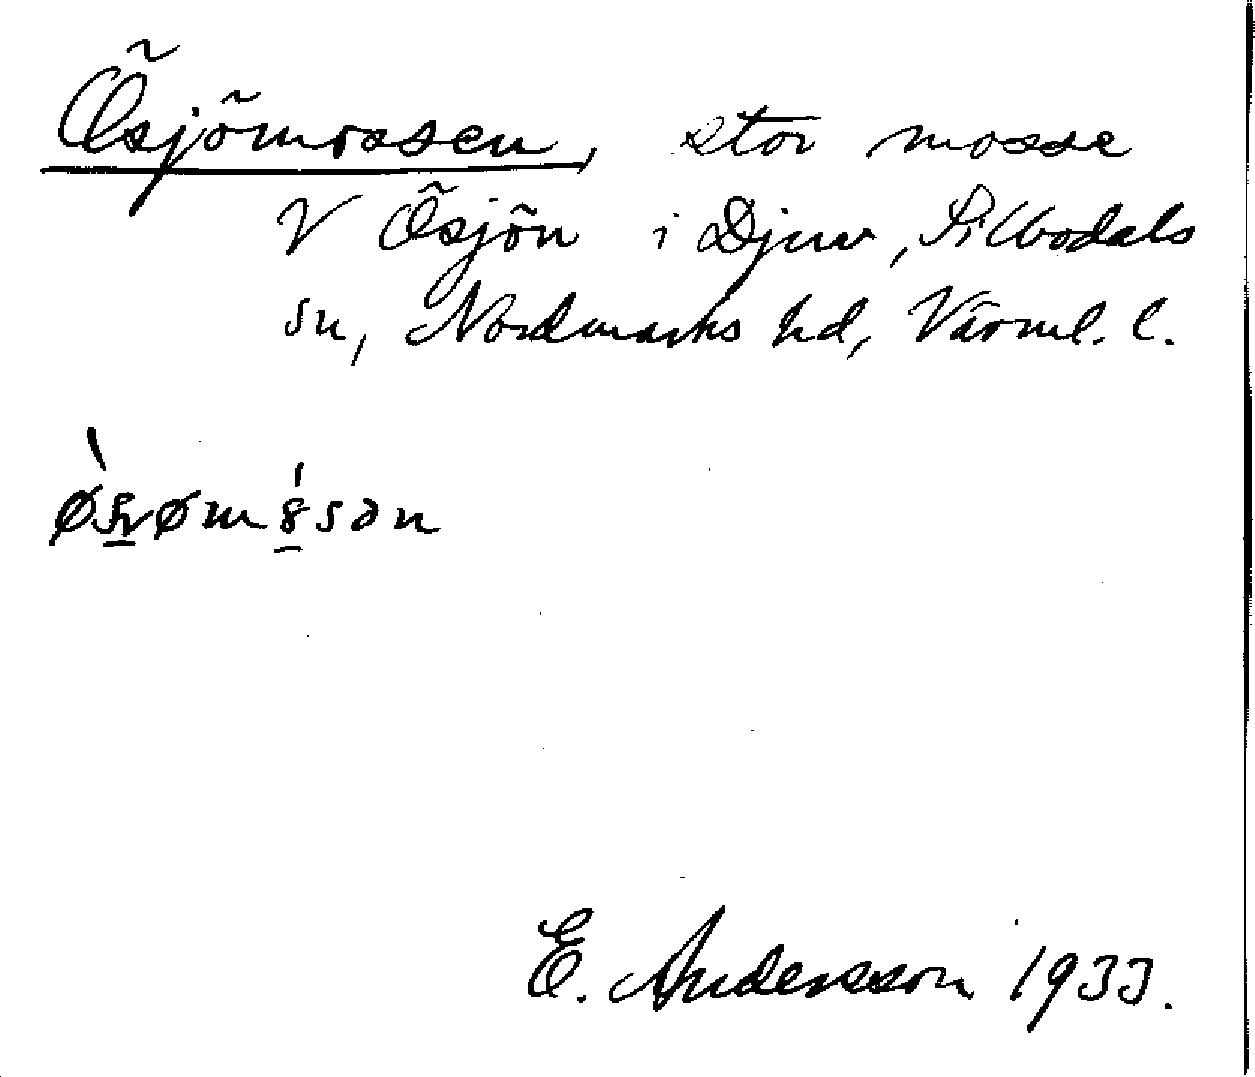 Ösjömossen, stor mosse
V Ösjön i Djuv, Silbodals
sn, Nordmarks hd, Värml. l.
E. Andersson 1933.